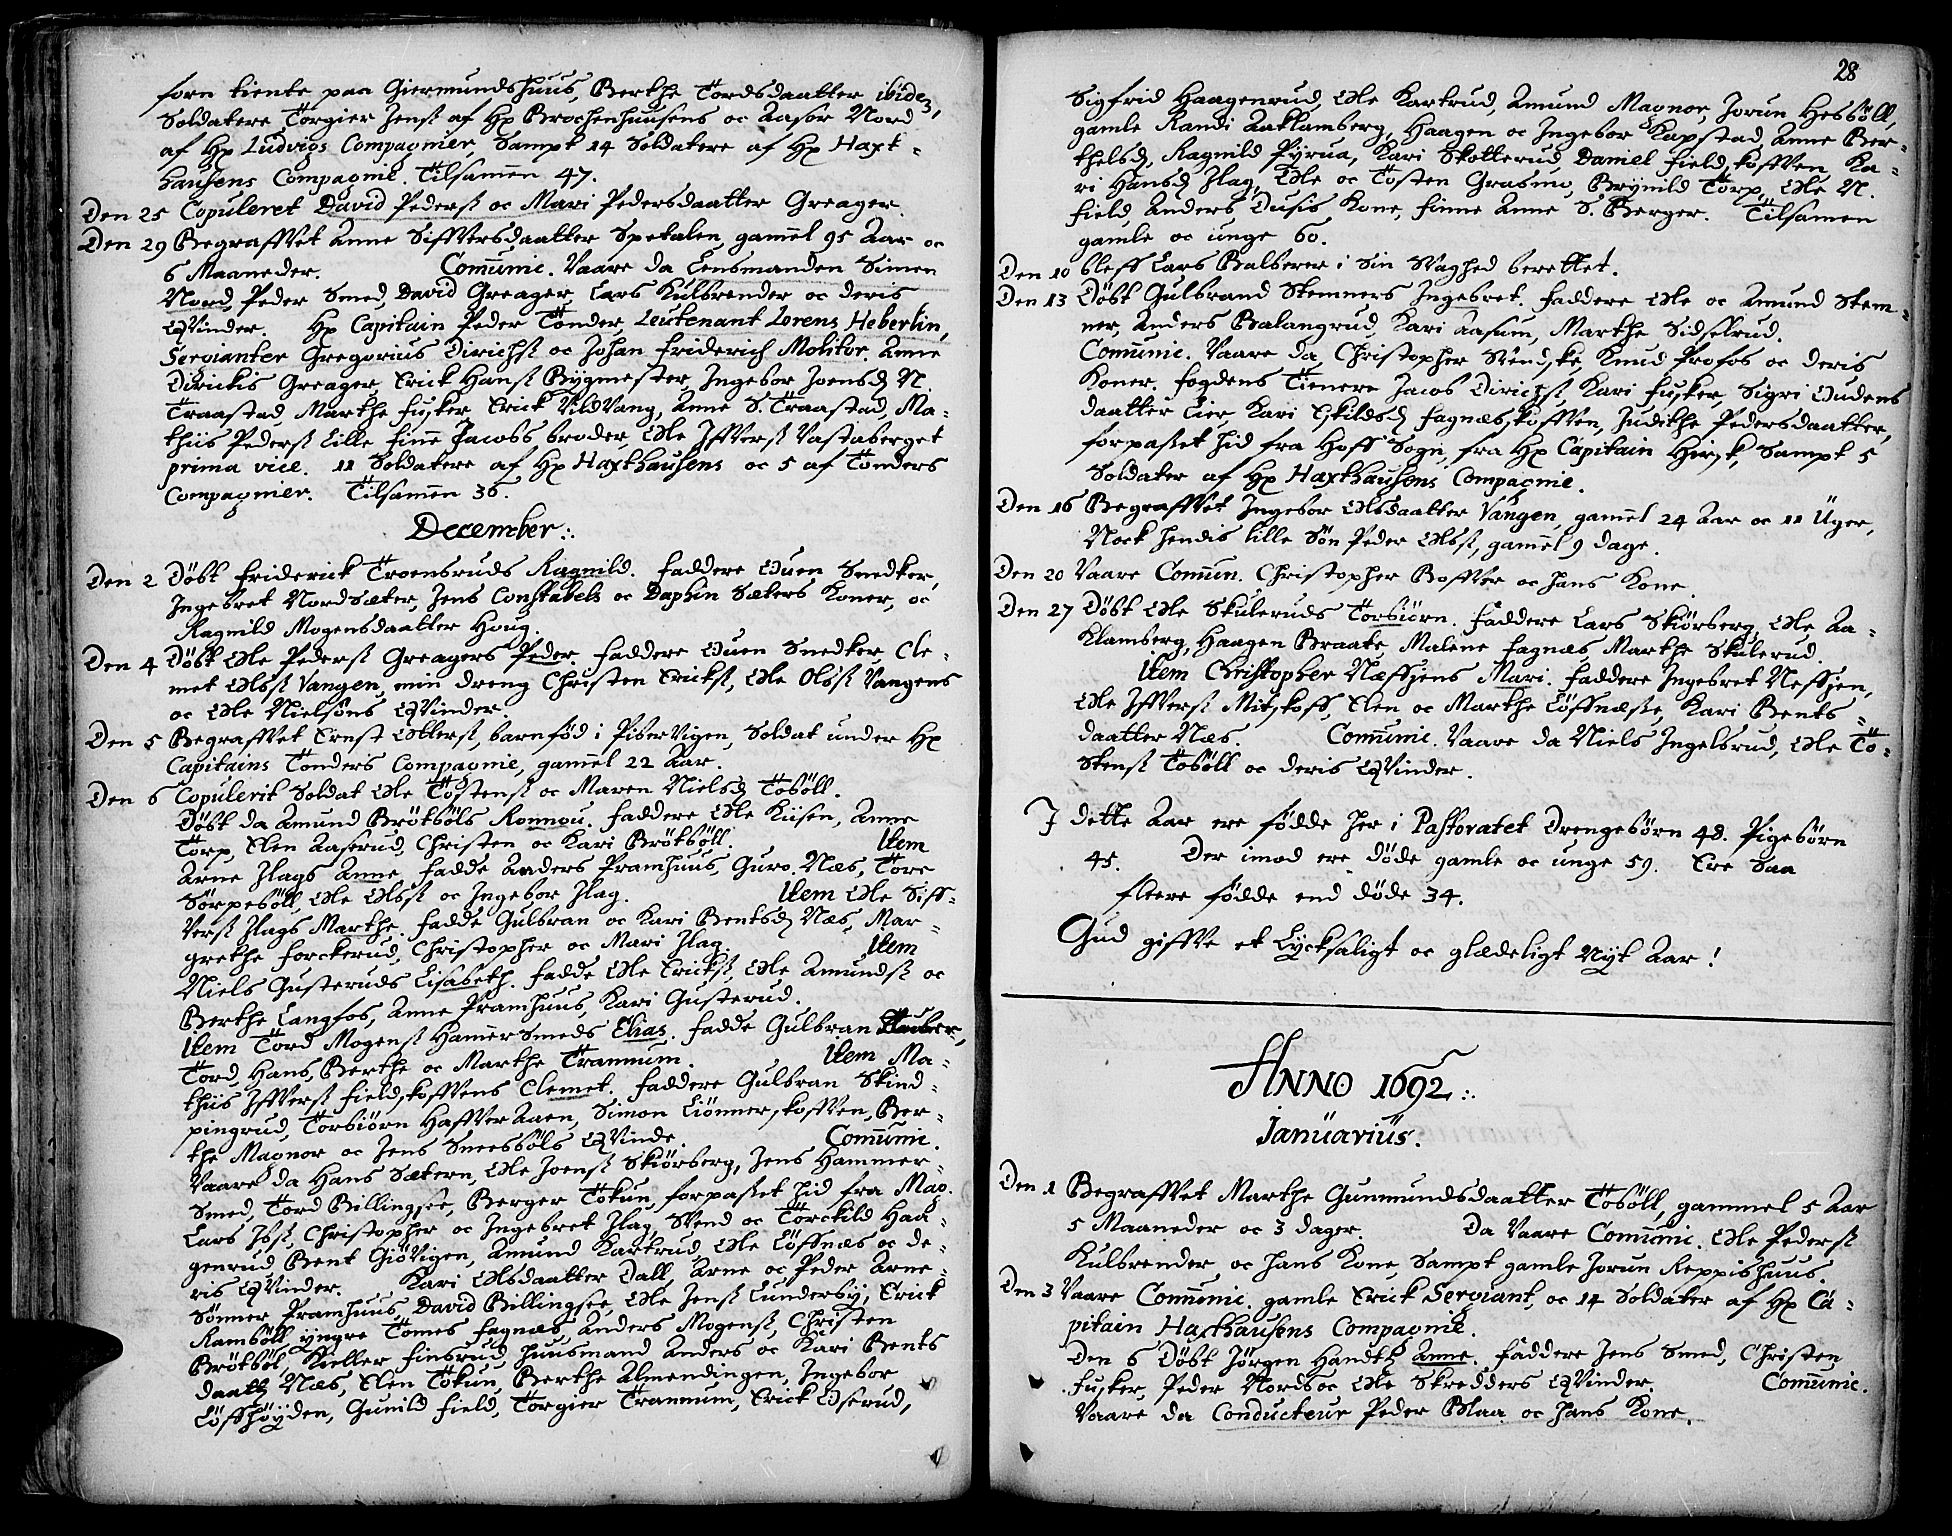 forn tiente paa Giermundshuus, Berthe Tordsdaatter ibidē,
Soldatere Torgier Jensß af Hr Brochenhuusens oc Aasor Nord
af Hr Ludvigs Compagnier, Sampt 14 Soldatere af Hr Haxt-
hausens Compagnie. Tilsam̄en 47.
Den 25 Copuleret David Pedersß oc Mari Pedersdaatter Greager.
Den 29 Begraffvet Anne Siffversdaatter Spetalen, gam̄el 95 Aar oc
6 Maaneder. Com̄unic. Vaare da Lensmanden Simen
Nord, Peder Smed, David Greager, Lars Kulbrender oc deris
Qvinder. Hr Capitain Peder Tønder, Leutenant Lorens Heberlin,
Servianter Gregorius Dirichsß oc Johan Friderich Molitor, Anne
Dirickis Greager, Erick Hansß Bygmester, Ingebor Joensd N.
Traastad, Marthe Fusker, Erick Vildvang, Anne S. Traastad, Ma-
thiis Pedersß Lille, Finne Jacobs broder, Ole Iffversß Vastaberget
prima vice. 11 Soldatere af Hr Haxthausens oc 5 af Tønders
Compagnier. Tilsam̄en 36.
December.
Den 2 Døbt Friderick Troensruds Ragnild. Faddere Ouen Snedker,
Ingebret Nordsæter, Jens Constabels oc Daphin Sæters Koner, oc
Ragnild Mogensdaatter Houg.
Den 4 Døbt Ole Pedersß Greagers Peder. Faddere Ouen Snedker, Cle-
met Olsß Vangen, min dreng Christen Ericksß, Ole Olsß Vangens
oc Ole Nielsøns Qvinder.
Den 5 Begraffvet Ernst Ottersß, barnfød i Pibervigen, Soldat under Hr
Capitains Tønders Compagnie, gam̄el 22 Aar.
Den 6 Copulerit Soldat Ole Tostensß oc Maren Nielsd Tobøll.
Døbt da Amund Brøtbøls Ronnou. Faddere Ole Kiisen, Anne
Torp, Elen Aaserud, Christen oc Kari Brøtbøll. Item
Arne Ilags Anne, Fadde Anders Framhuus, Guro Næs, Tore
Sørpebøll, Ole Olsß oc Ingebor Ilag. Item Ole Siff-
versß Ilags Marthe. Fadde Gulbran oc Kari Bentsd Næs, Mar-
grethe Forckerud, Christopher oc Mari Ilag. Item
Niels Gusteruds Lisabeth. Fadde Ole Ericksß, Ole Amundsß oc
Berthe Langfos, Anne Framhuus, Kari Gusterud.
Item Tord Mogensß Ham̄ersmeds Elias. Fadde Gulbran,
Tord, Hans, Berthe oc Marthe Trannum. Item Ma-
thiis Iffversß Fieldskoffvens Clemet. Faddere Gulbran Skind-
pingrud, Torbiørn Haffver Aaen, Simon Liønnerskoffven, Ber-
the Magnor oc Jens Sneesbøls Qvinde. Com̄unic.
Vaare da Hans Sætern, Ole Joensß Skiørberg, Jens Hammer-
Smed, Tord Billingsee, Berger Tokun, forpasset hid fra Mag.
Lars Ibsß, Christopher oc Ingebret Ilag, Svend oc Torckild Haa-
genrud, Bent Giøvigen, Amund Kartrud, Ole Løffnæs oc de-
ris Qvinder. Kari Olsdaatter Dall, Arne oc Peder Arne-
Sønner Framhuus, David Billingsee, Ole Jensß Lundersby, Erick
Rambøll, yngre Tomes Fagnæs, Anders Mogensß, Christen
Brøtbøl, Kieller Finsrud, Huusmand Anders oc Kari Bents
daattr Næs, Elen Tokun, Berthe Almendingen, Ingebor
Løffhøyden, Gunild Field, Torgier Trannum, Erick Oserud,
28
Sigfrid Haagenrud, Ole Kartrud, Amund Magnor, Jorun Hesbøll,
gamle Randi Aaklamberg, Haagen oc Ingebor Kapstad, Anne Ber-
thelsd, Ragnild Pyrua, Kari Skotterud, Daniel Fieldskoffven, Ka-
ri Hansd Ilag, Ole oc Tosten Grasmo, Brynild Torp, Ole N.
Field, Anders Dusis Kone, Finne Anne S. Berger. Tilsamen
gamle oc unge 60.
Den 10 bleff Lars Balberer i Sin Svaghed berettet.
Den 13 Døbt Gulbrand Stemners Ingebret. Faddere Ole oc Amund Stem-
ner, Anders Balangrud, Kari Aasum, Marthe Sidselrud.
Com̄unic. Vaare da Christopher Svendske, Knud Profos oc deris
Koner. Fogdens Tienere Jacob Dirichsß, Kari Fusker, Sigri Oudens
daatter Lier, Kari Eskildsd Fagnæsskoffven, Judithe Pedersdaatter,
forpasset hid fra Hoff Sogn, fra Hr Capitain Hirsk, Sampt 5
Soldater af Hr Haxthausens Compagnie.
Den 16 Begraffvet Ingebor Olsdaatter Vangen, gam̄el 24 Aar oc 11 Uger,
Nock hendis lille Søn Peder Olsß, gam̄el 9 dage.
Den 20 Vaare Com̄un. Christopher Boffver oc hans Kone.
Den 27 Døbt Ole Skuleruds Torbiørn. Faddere Lars Skiørberg, Ole Aa-
klamberg, Haagen Braate, Malene Fagnæs, Marthe Skulerud.
Item Christopher Næssjens Mari. Faddere Ingebret Nessjen,
Ole Iffversß Mitskoff, Elen oc Marthe Løffnæsie, Kari Bents-
daatter Næs. Com̄unic. Vaare da Niels Ingelsrud, Ole To-
stensß Tobøll oc deris Qvinder.
I dette Aar ere fødde her i Pastoratet Drengebørn 48. Pigebørn
45. Der imod ere døde gamle oc unge 59. Ere Saa
fleere fødde end døde 34.
Gud giffve et Lycksaligt oc glædeligt Nyt Aar!
ANNO 1692.
Januarius.
Den 1 Begraffvet Marthe Gunmundsdaatter Tobøll, gammel 5 Aar
5 Maaneder oc 3 dager. Da Vaare Com̄unic. Ole Pedersß
Kulbrender oc hans Kone, Sampt gamle Jorun Reppishuus.
Den 3 Vaare Com̄unic. gamle Erick Serviant, oc 14 Soldater af Hr Ca-
pitain Haxthausens Compagnie.
Den 6 Døbt Jørgen Handtz Anne. Faddere Jens Smed, Christen
Fusker, Peder Nords oc Ole Skredders Qvinder. Com̄unic.
Vaare da Conducteur Peder Blaa oc hans Kone.